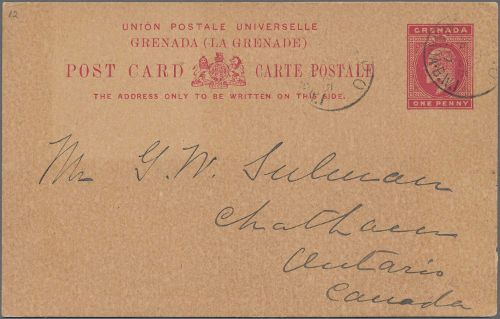 12
UNION POSTALE UNIVERSELLE
GRENADA (LA GRENADE)
POST CARD CARTE POSTALE
THE ADDRESS ONLY TO BE WRITTEN ON THIS SIDE.
GRENADA
ONE PENNY
Mr G. W. Sulman
Chatham
Ontario
Canada